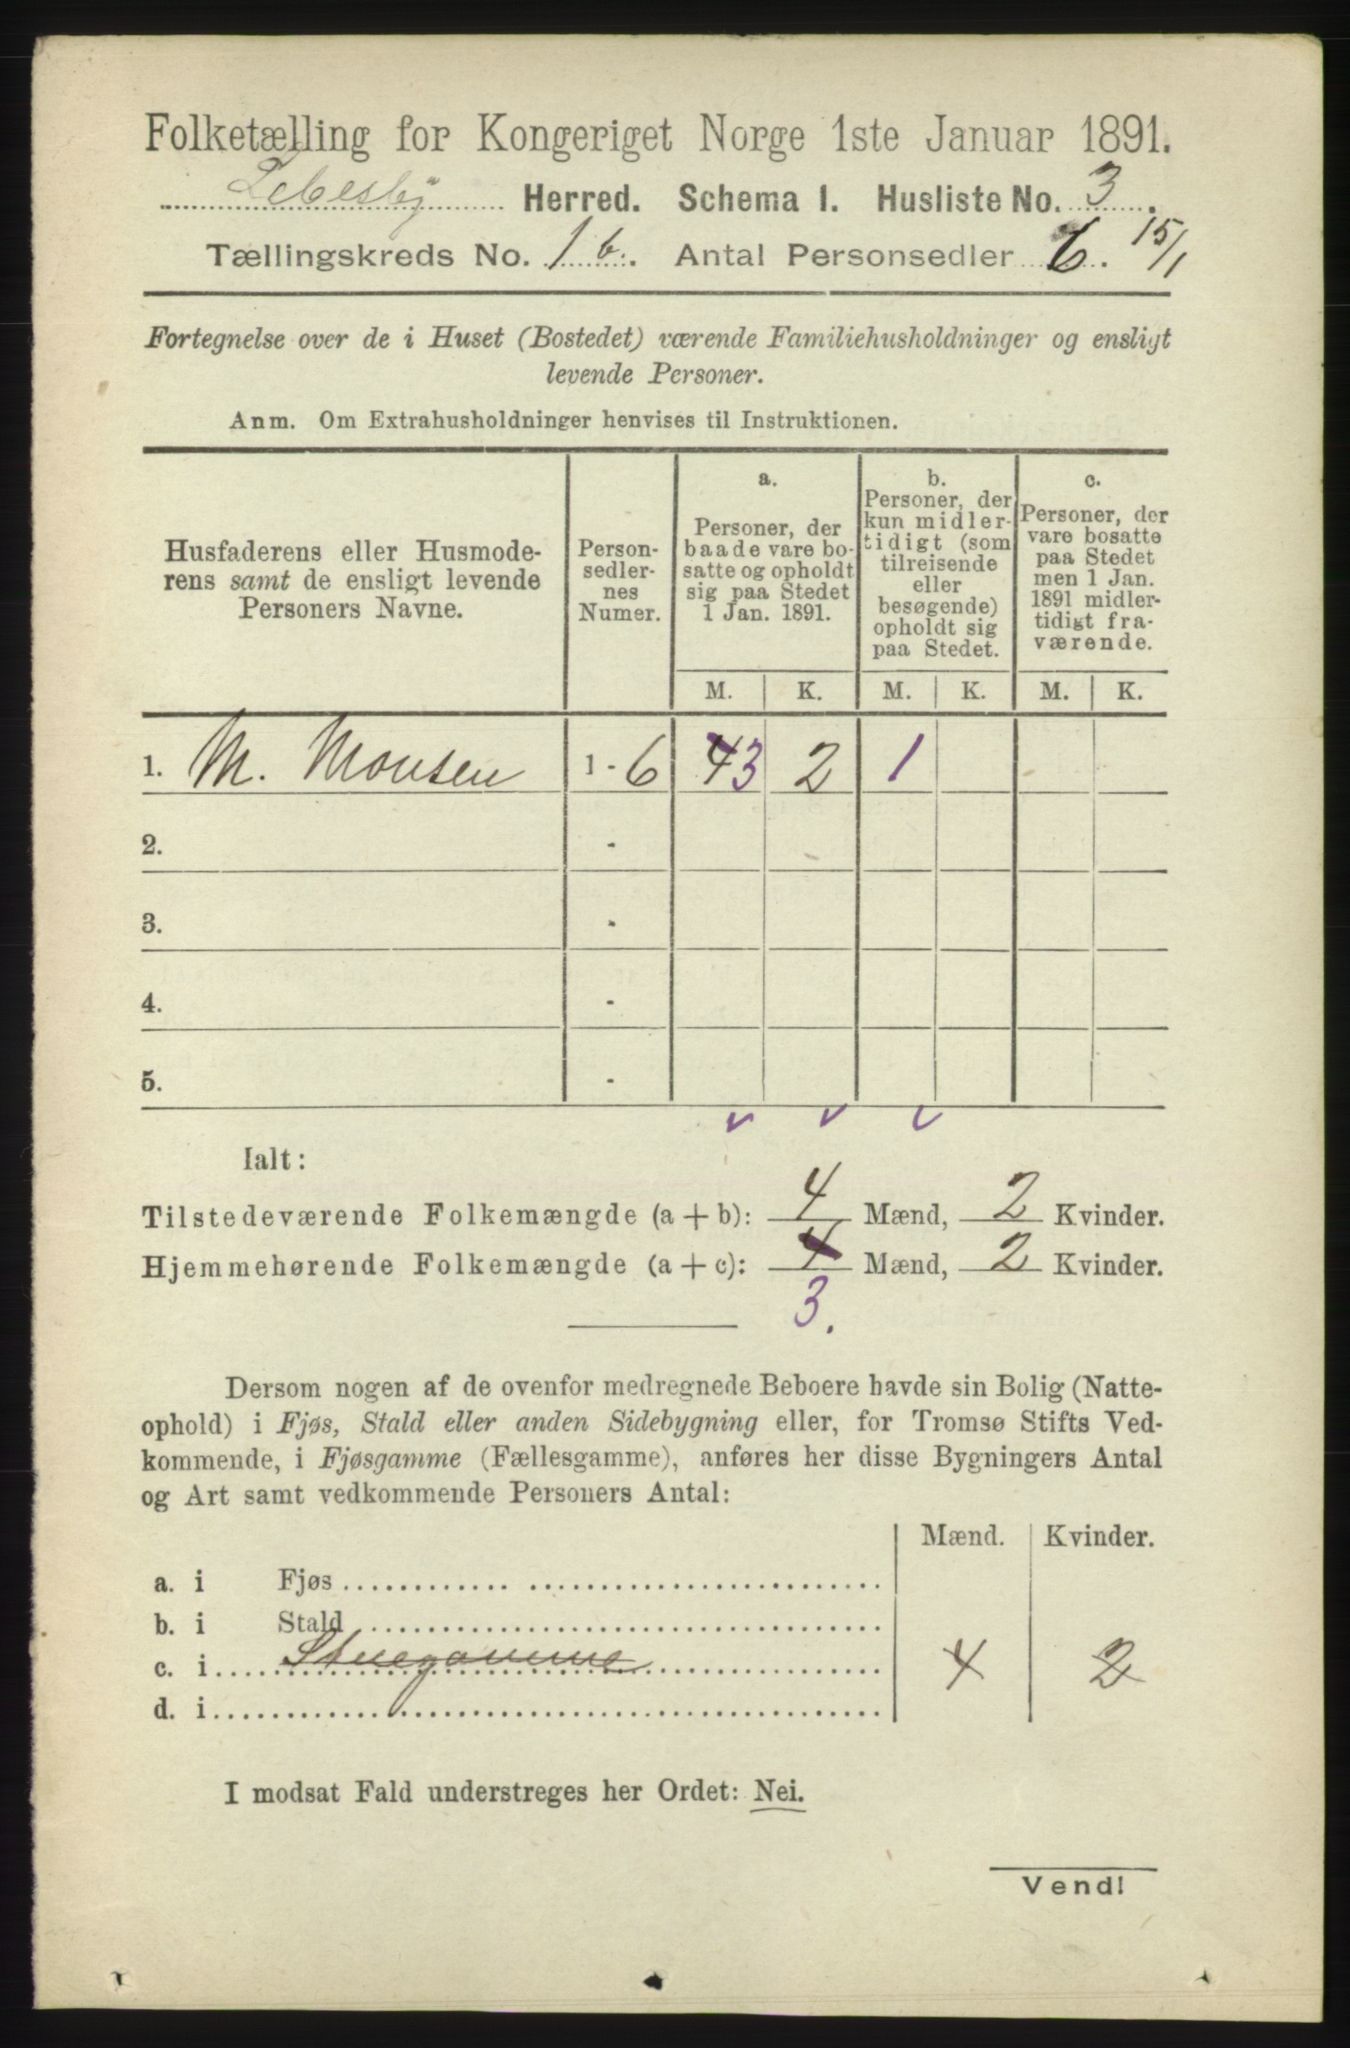 Folketælling for Kongeriget Norge 1ste Januar 1891.
Lebesby Herred. Schema I. Husliste No. 3.
Tællingskreds No. 1 b. Antal Personsedler 6. 15/1
Fortegnelse over de i Huset (Bostedet) værende Familiehusholdninger og ensligt
levende Personer.
Anm. Om Extrahusholdninger henvises til Instruktionen.
Husfaderens eller Husmode-
rens samt de ensligt levende
Personers Navne.
Person-
sedler-
nes
Numer.
a.
Personer, der
baade vare bo-
satte og opholdt
sig paa Stedet
1 Jan. 1891.
b.
Personer, der
kun midler-
tidigt (som
tilreisende
eller
besøgende)
opholdt sig
paa Stedet.
c.
Personer, der
vare bosatte
paa Stedet
men 1 Jan.
1891 midler-
tidigt fra-
værende.
M. K. M. K. M. K.
1. M. Monsen 1 - 6 4 3 2 1
2. -
3. -
4. -
5. -
Ialt:
Tilstedeværende Folkemængde (a + b): 4 Mænd, 2 Kvinder.
Hjemmehørende Folkemængde (a + c): 4 Mænd, 2 Kvinder.
3.
Dersom nogen af de ovenfor medregnede Beboere havde sin Bolig (Natte-
ophold) i Fjøs, Stald eller anden Sidebygning eller, for Tromsø Stifts Ved-
kommende, i Fjøsgamme (Fællesgamme), anføres her disse Bygningers Antal
og Art samt vedkommende Personers Antal:
Mænd. Kvinder.
a. i Fjøs
b. i Stald
c. i Stuegamme 4 2
d. i
I modsat Fald understreges her Ordet: Nei.
Vend!